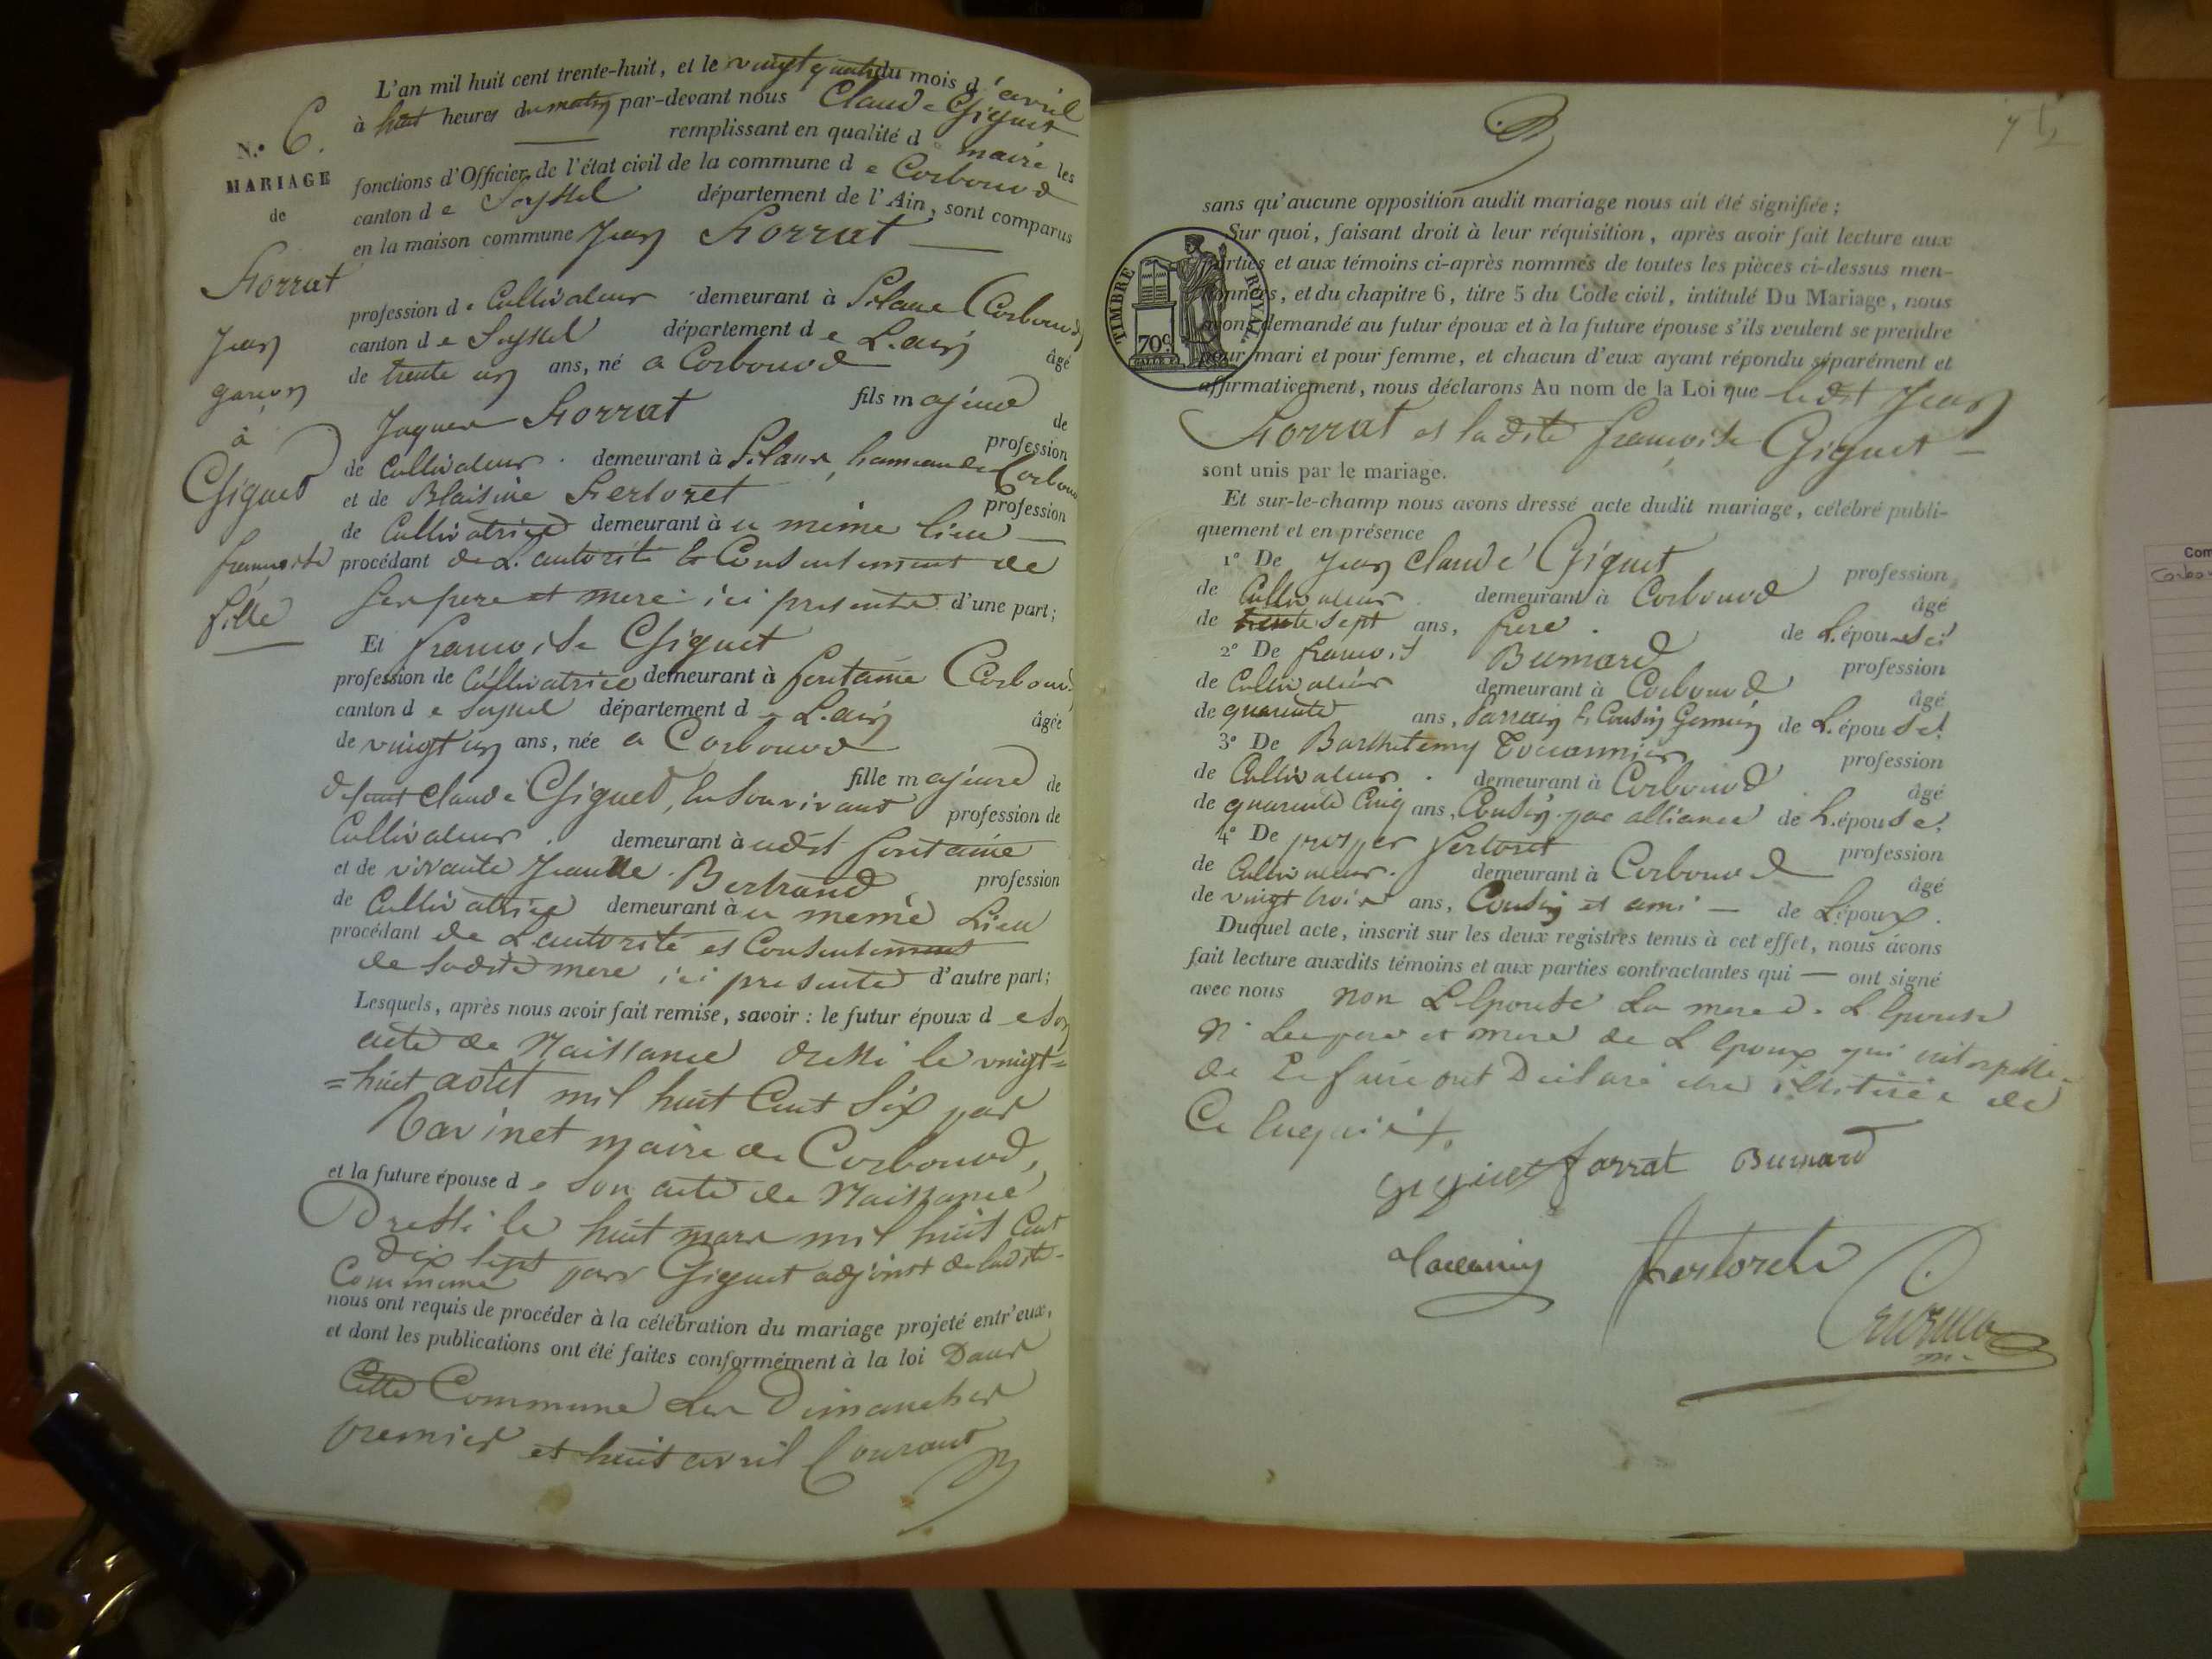 L'an mil huit cent trente-huit, et le vingt quatre du mois d'avril
à huit heures du matin par-devant nous Claude Giguet
remplissant en qualité de maire les
fonctions d'Officier de l'état civil de la commune de Corbonod
canton de Seyssel département de l'Ain, sont comparus
en la maison commune Jean Forrat
N.° 6.
MARIAGE
de
Forrat
Jean
garçon
à
Giguet
françoise
fille
profession de Cultivateur demeurant à Silans (Corbonod)
canton de Seyssel département de L'ain âgé
de trente un ans, né a Corbonod
fils majeur de
Jaques Forrat profession
de Cultivateur. demeurant à Silans, hameau de Corbonod
et de Blaisine Fertoret profession
de Cultivatrice demeurant à u même lieu
procédant de L'autorité & Consentement de
ses pere et mere ici presents d'une part;
Et françoise Giguet
profession de Cultivatrice demeurant à fontaine (Corbonod)
canton de Seyssel département de L'ain âgée
de vingt un ans, née a Corbonod
fille majeure de
defunt Claude Giguet, en son vivant profession de
Cultivateur. demeurant à udit fontaine
et de vivante Jeanne Bertrand profession
de Cultivatrice demeurant à u meme Lieu
procédant de L'autorité et Consentement
de sadite mere ici presente d'autre part;
Lesquels, après nous avoir fait remise, savoir : le futur époux de son
acte de Naissance dressé le vingt=
=huit août mil huit Cent Six par
Ravinet maire de Corbonod,
et la future épouse de son acte de Naissance
Dressé le huit mars mil huit Cent
Dix sept par Giguet adjoint de ladite
Commune
nous ont requis de procéder à la célébration du mariage projeté entr'eux,
et dont les publications ont été faites conformément à la loi Dans
Cette Commune Les Dimanches
premier et huit avril Courant
sans qu'aucune opposition audit mariage nous ait été signifiée ;
Sur quoi, faisant droit à leur réquisition, après avoir fait lecture aux
parties et aux témoins ci-après nommés de toutes les pièces ci-dessus men-
tionnées, et du chapitre 6, titre 5 du Code civil, intitulé Du Mariage, nous
avons demandé au futur époux et à la future épouse s'ils veulent se prendre
pour mari et pour femme, et chacun d'eux ayant répondu séparément et
affirmativement, nous déclarons Au nom de la Loi que ledit Jean
Forrat et ladite françoise Giguet
TIMBRE ROYAL.
70c.
sont unis par le mariage.
Et sur-le-champ nous avons dressé acte dudit mariage, célébré publi-
quement et en présence
1° De Jean Claude Giguet profession
de Cultivateur. demeurant à Corbonod âgé
de trente sept ans, frere de L'épouse
2° De françois Burnard profession
de Cultivateur demeurant à Corbonod âgé
de quarante ans, Parrain & Cousin Germain de L'épouse
3° De Barthelemy profession
de Cultivateur. demeurant à Corbonod âgé
de quarante Cinq ans, Cousin par alliance de L'épouse.
4° De prosper fertoret profession
de Cultivateur. demeurant à Corbonod âgé
de vingt trois ans, Cousin et ami de L'époux.
Duquel acte, inscrit sur les deux registres tenus à cet effet, nous avons
fait lecture auxdits témoins et aux parties contractantes qui — ont signé
avec nous non L'Epouse La mere de L'Epouse
ni Les pere et mere de L'Epoux qui interpellés
de Le faire ont Déclaré être illitérés de
Ce Enquis.
giguet forrat Burnard
fertoret